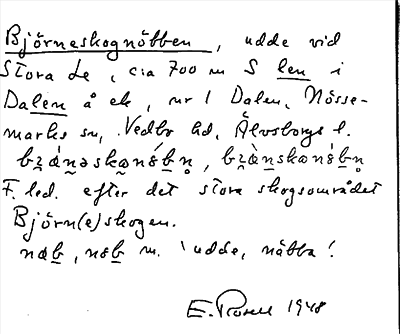 Björneskognöbben, udde vid
Stora Le, c:a 700 m S len i
Dalen å ek, nr 1 Dalen, Nösse-
marks sn, Vedbo hd, Älvsborgs l.
F. led. efter det stora skogsområdet
Björn(e)skogen.
nab, nöb m. 'udde, näbba'.
E. Rosell 1948